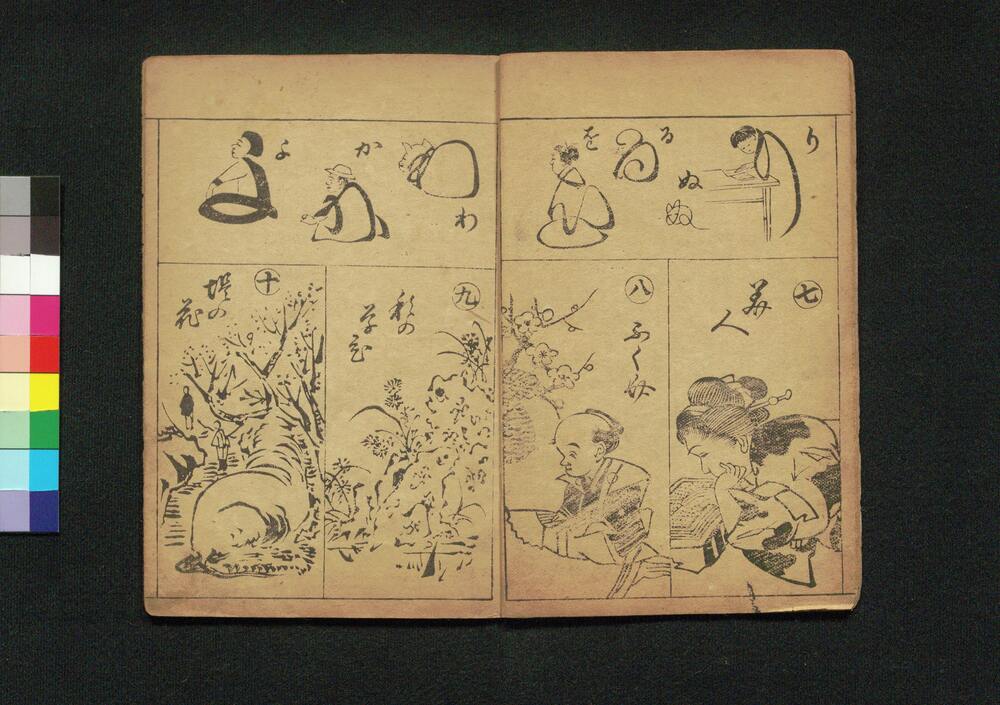 り
ぬ
る
を
わ
か
よ
七
美人
八
ふく助
九
秋の
十
堤の
花